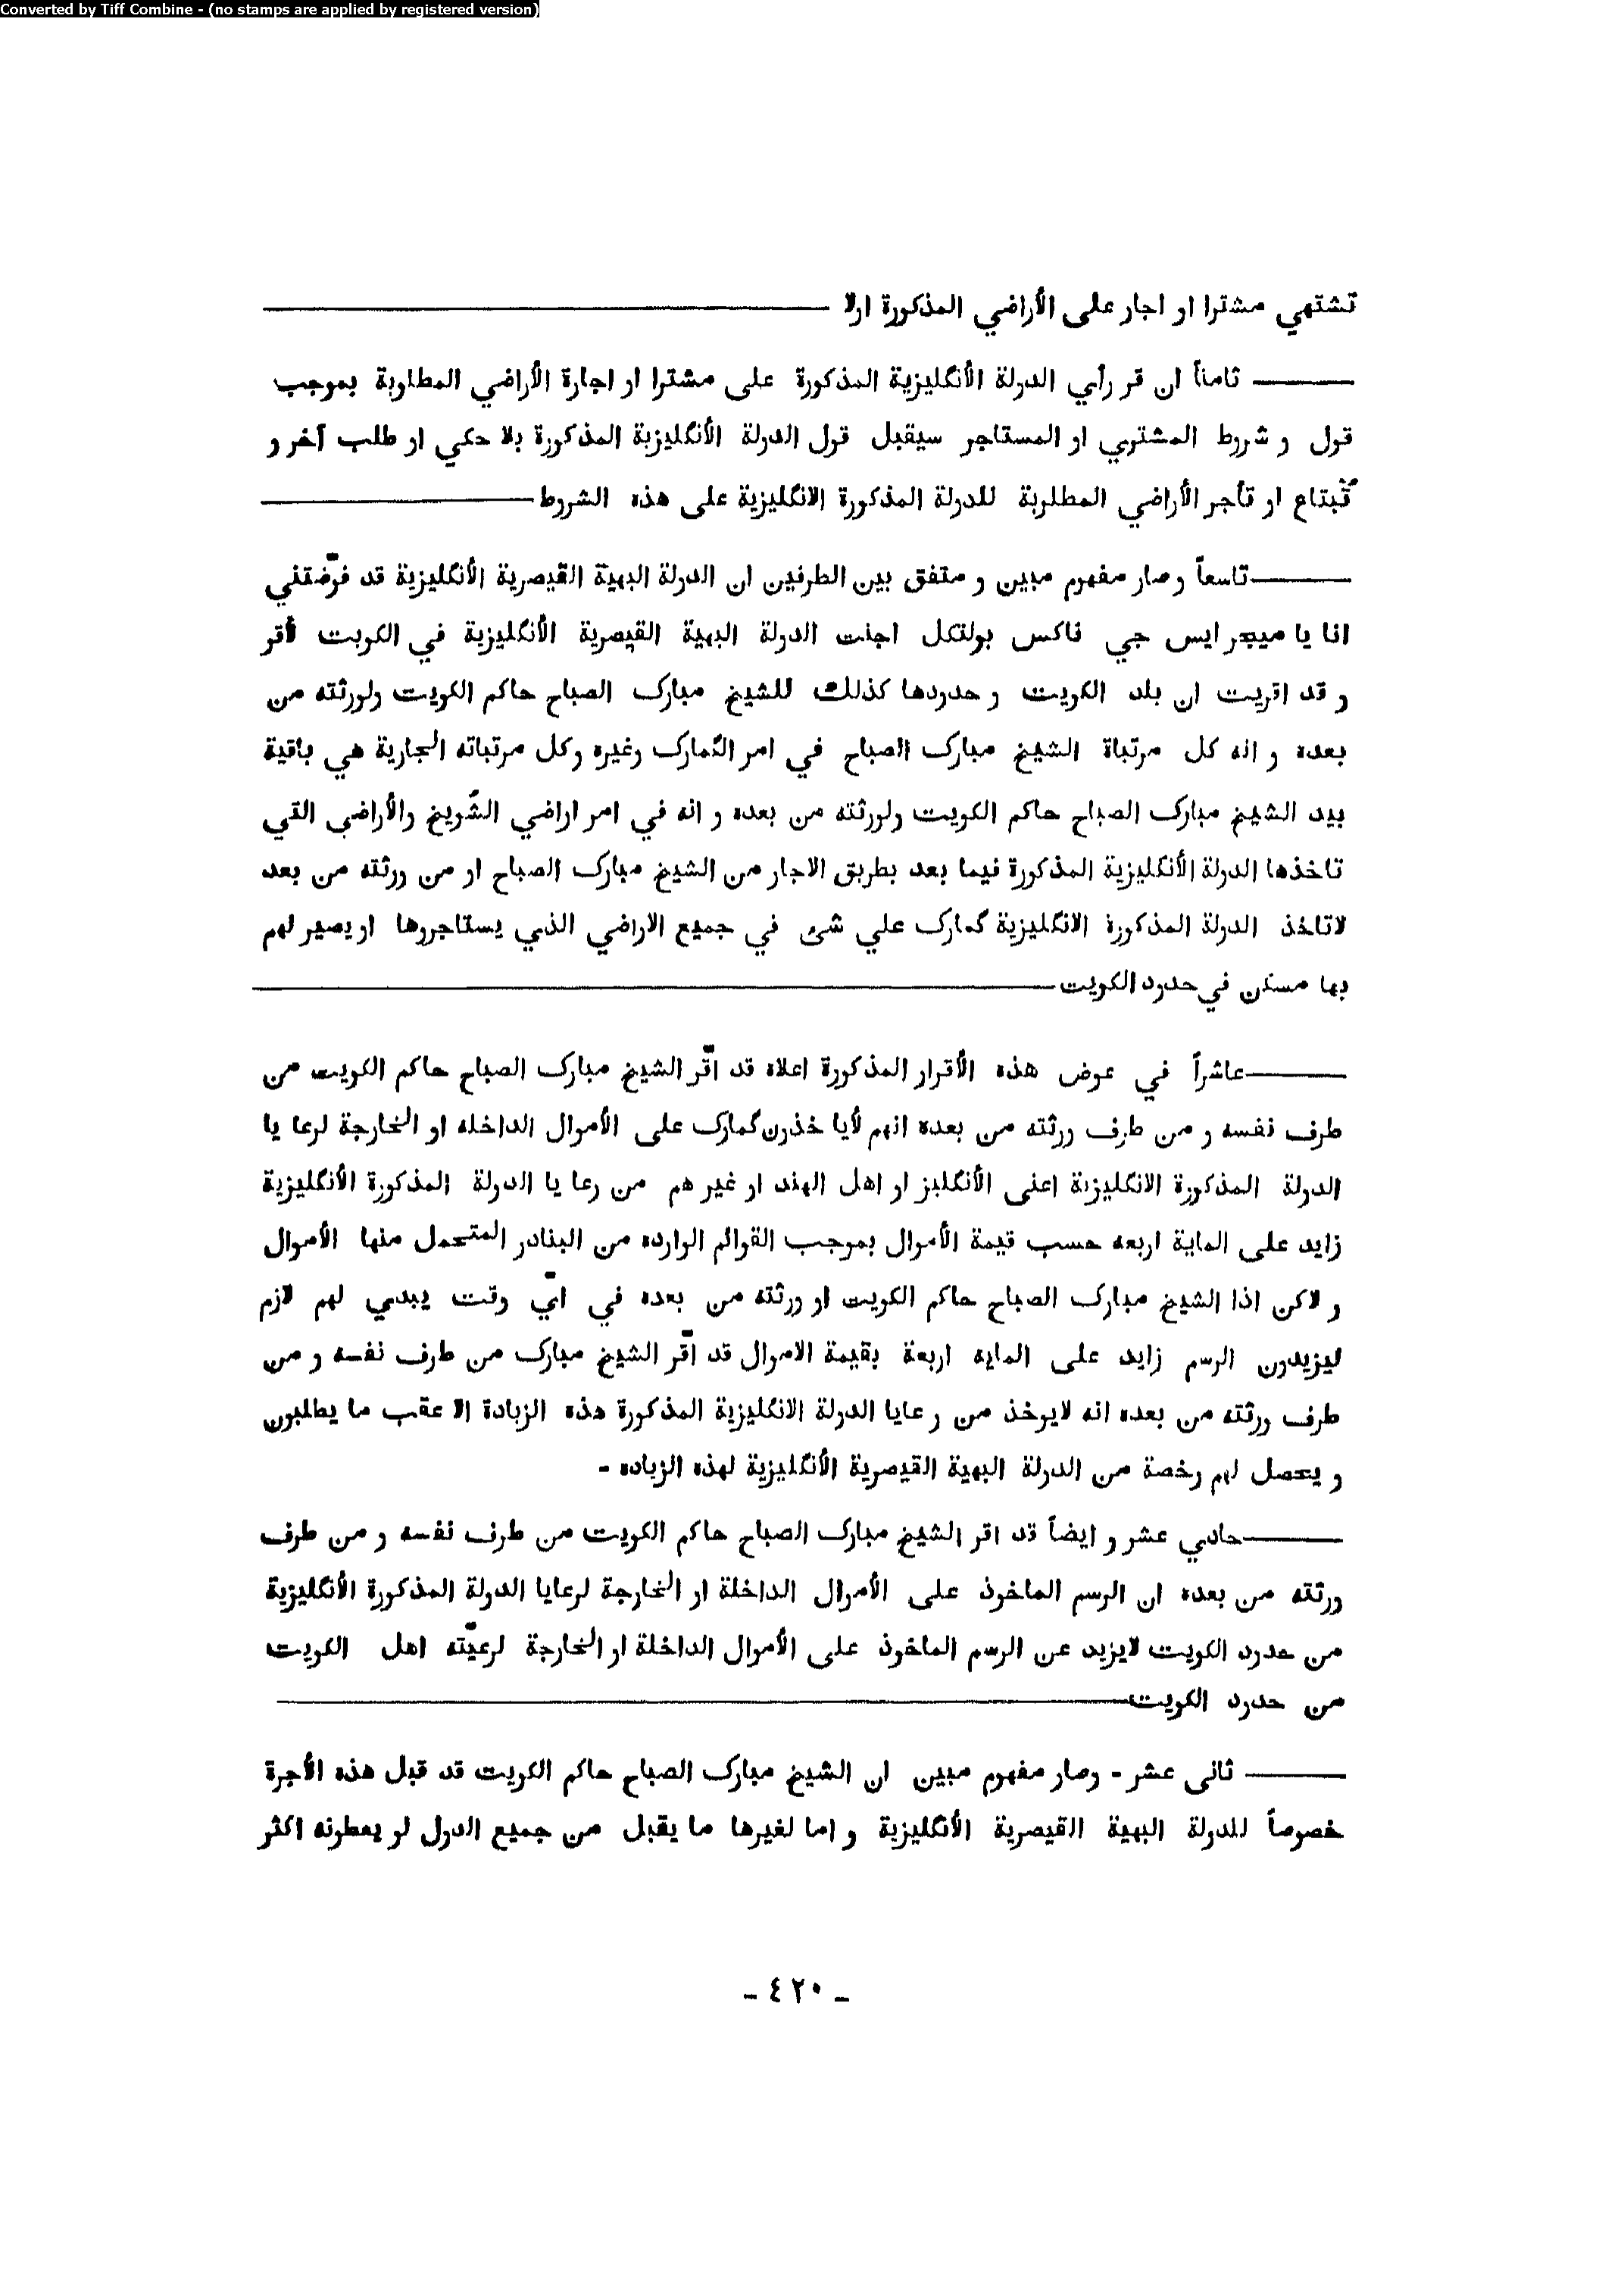 Converted by Tiff Combine - (no stamps are applied by registered version)
تشتهي مشترا او اجار على الأراضي المذكورة اولا
ثامناً ان قر رأي الدولة الأنگليزية المذكورة على مشترا او اجارة الأراضي المطلوبة بموجب
قول و شروط المشتري او المستاجر سيقبل قول الدولة الأنگليزية المذكورة بلا حكي او طلب آخر و
تُبتاع او تأجر الأراضي المطلوبة للدولة المذكورة الانگليزية على هذه الشروط
تاسعاً وصار مفهوم مبين و متفق بين الطرفين ان الدولة البهية القيصرية الأنگليزية قد فوّضتني
انا يا ميجر ايس جي ناكس بولتكل اجنت الدولة البهية القيصرية الأنگليزية في الكويت لأقر
و قد اقريت ان بلد الكويت و حدودها كذلك للشيخ مبارك الصباح حاكم الكويت ولورثته من
بعده و انه كل مرتباة الشيخ مبارك الصباح في امر الگمارك وغيره وكل مرتباته الجارية هي باقية
بيد الشيخ مبارك الصباح حاكم الكويت ولورثته من بعده و انه في امر اراضي الشُويخ والأراضي التي
تاخذها الدولة الأنگليزية المذكورة فيما بعد بطريق الاجار من الشيخ مبارك الصباح او من ورثته من بعد
لاتاخذ الدولة المذكورة الانگليزية گمارك علي شئ في جميع الاراضي الذي يستاجروها او يصير لهم
بها مسكن في حدود الكويت
عاشراً في عوض هذه الأقرار المذكورة اعلاه قد اقّر الشيخ مبارك الصباح حاكم الكويت من
طرف نفسه و من طرف ورثته من بعده انهم لأيا خذون گمارك على الأموال الداخله او الخارجة لرعا يا
الدولة المذكورة الانگليزية اعنى الأنگليز او اهل الهند او غير هم من رعا يا الدولة المذكورة الأنگليزية
زايد على الماية اربعه حسب قيمة الأموال بموجب القوائم الوارده من البنادر المتحمل منها الأموال
و لاكن اذا الشيخ مبارك الصباح حاكم الكويت او ورثته من بعده في ايّ وقت يبدي لهم لازم
ليزيدون الرسم زايد على المايه اربعة بقيمة الاموال قد اقّر الشيخ مبارك من طرف نفسه و من
طرف ورثته من بعده انه لايوخذ من رعايا الدولة الانگليزية المذكورة هذه الزيادة الا عقب ما يطلبون
و يحصل لهم رخصة من الدولة البهية القيصرية الأنگليزية لهذه الزياده -
حادي عشر و ايضاً قد اقر الشيخ مبارك الصباح حاكم الكويت من طرف نفسه و من طرف
ورثته من بعده ان الرسم الماخوذ على الأموال الداخلة او الخارجة لرعايا الدولة المذكورة الأنگليزية
من حدود الكويت لايزيد عن الرسم الماخوذ على الأموال الداخلة او الخارجة لرعيّته اهل الكويت
من حدود الكويت
ثانى عشر - وصار مفهوم مبين ان الشيخ مبارك الصباح حاكم الكويت قد قبل هذه الأجرة
خصوصاً للدولة البهية القيصرية الأنگليزية و اما لغيرها ما يقبل من جميع الدول لو يعطونه اكثر
- ٤٢٠ -